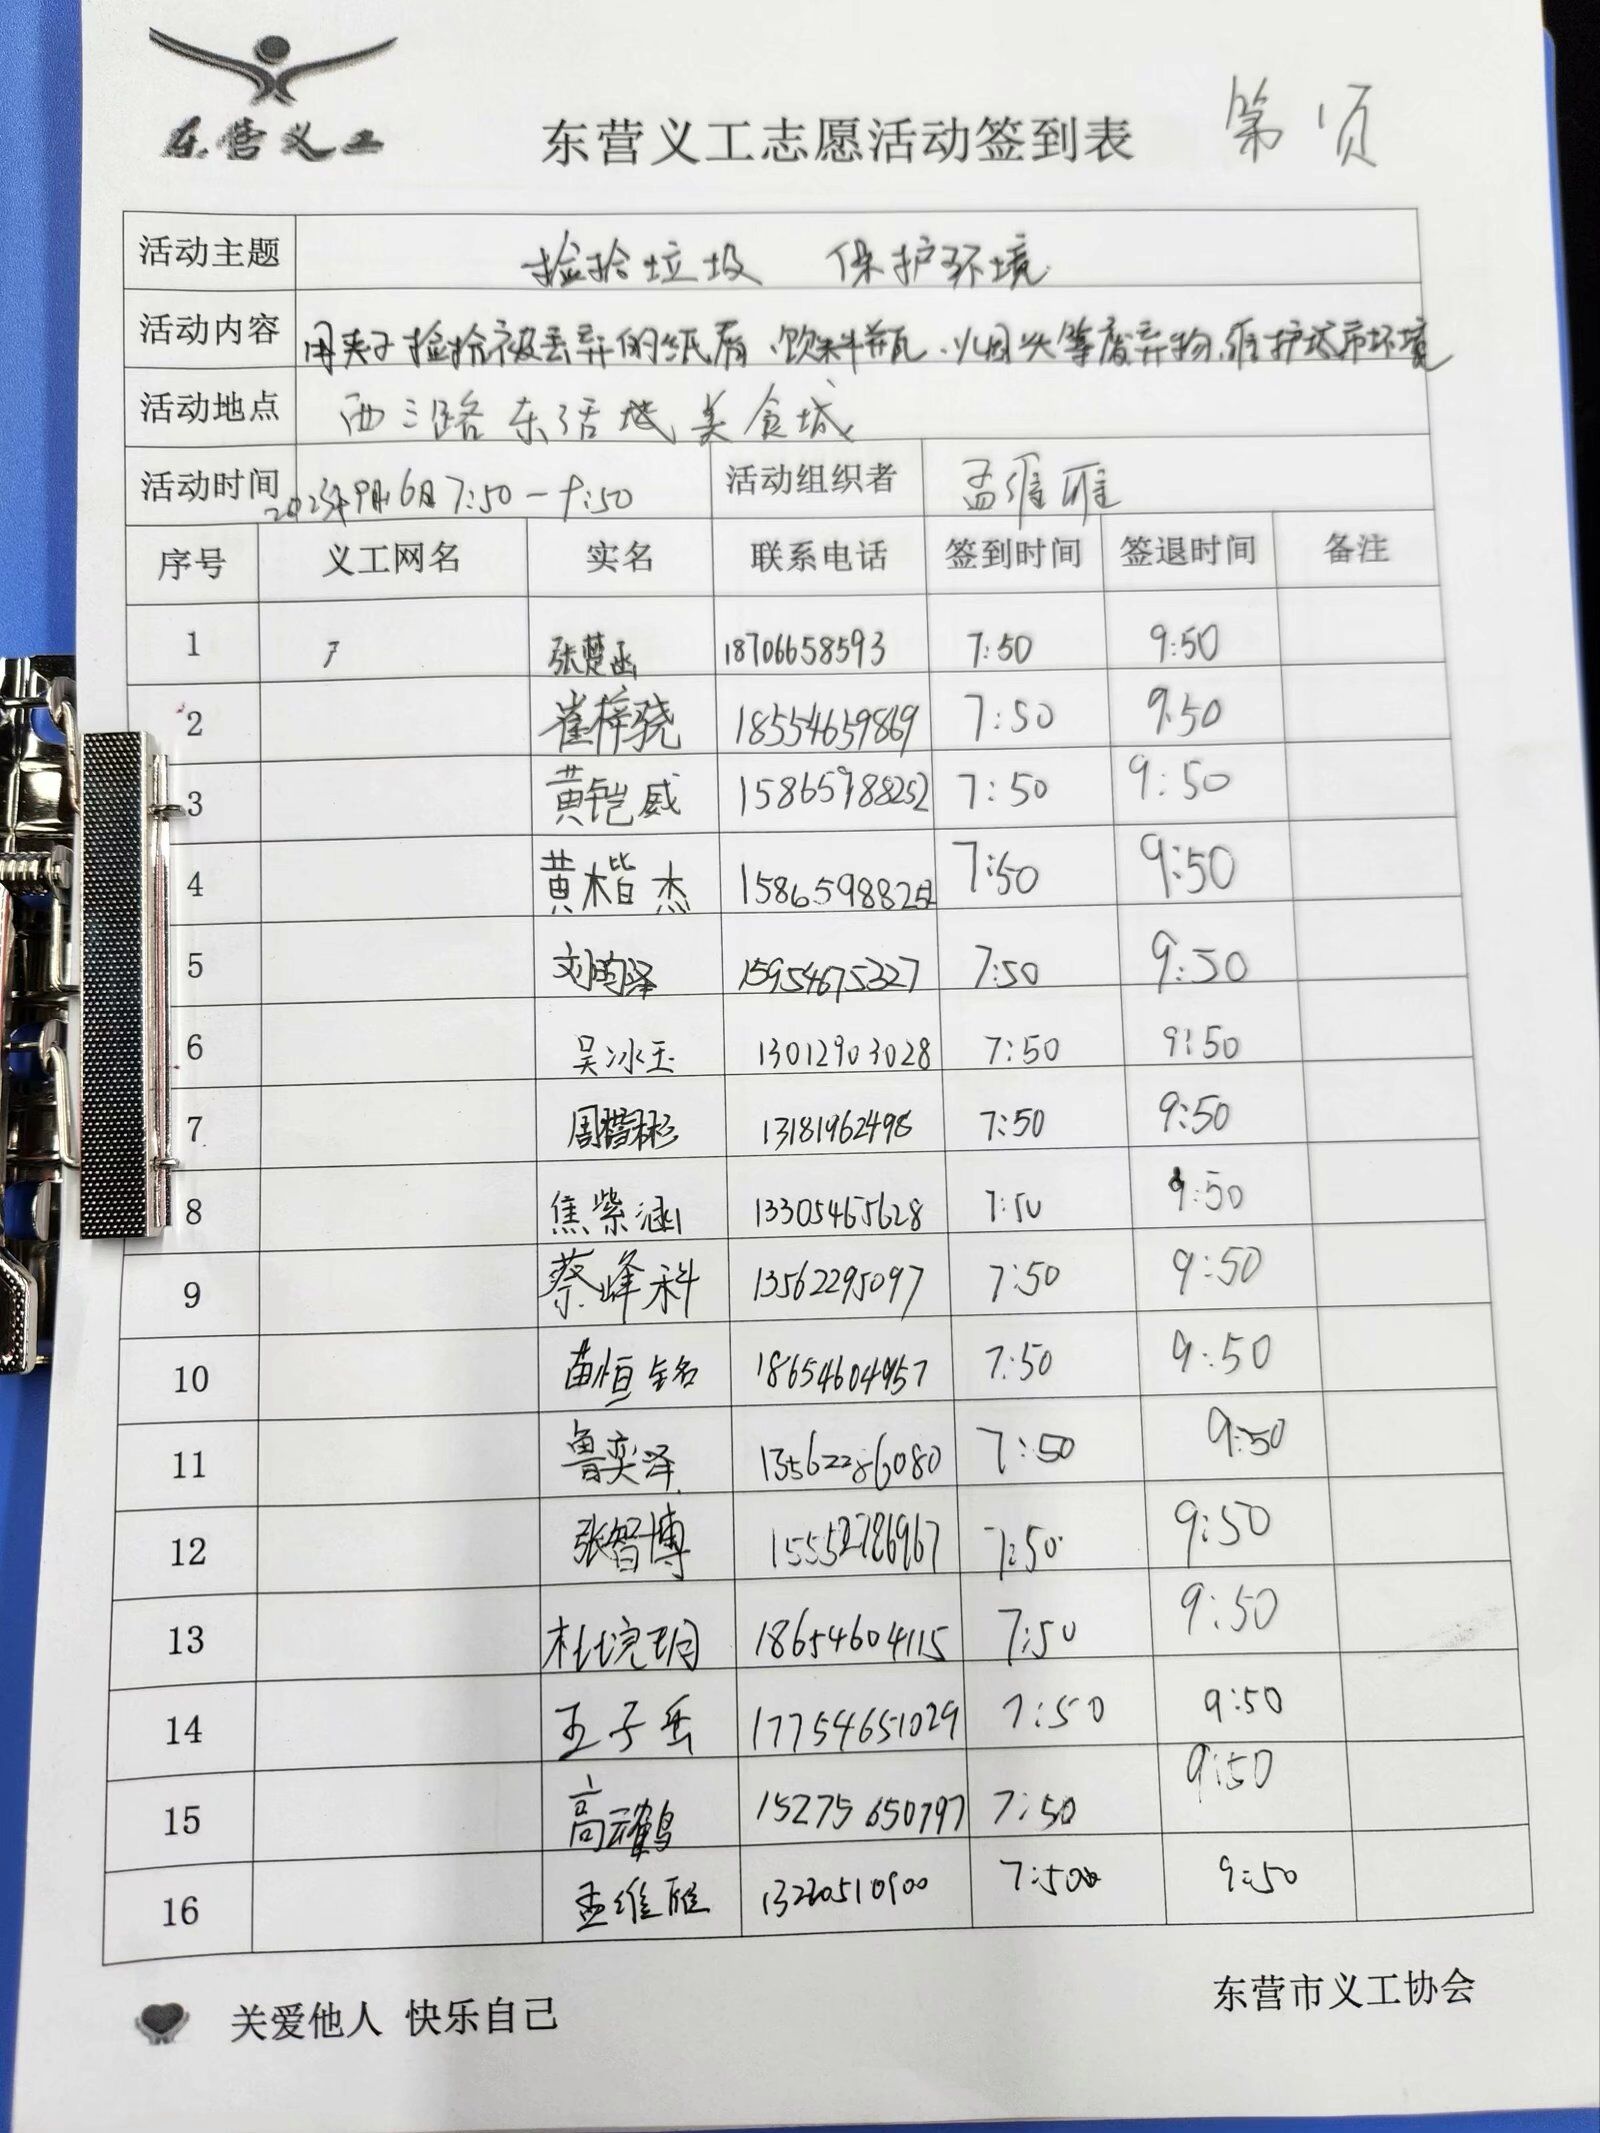 东营义工
东营义工志愿活动签到表 第 页
活动主题 捡拾垃圾 保护环境
活动内容 用夹子捡拾被丢弃的纸屑、饮料瓶、烟头等废弃物,维护城市环境
活动地点 西三路东 美食城
活动时间 9月16日7:50-9:50 活动组织者 孟维雁
序号 义工网名 实名 联系电话 签到时间 签退时间 备注
1 张楚函 18706658593 7:50 9:50
2 崔梓骁 18554659869 7:50 9:50
3 黄铠威 15865988252 7:50 9:50
4 黄楷杰 15865988252 7:50 9:50
5 刘昀泽 15954675327 7:50 9:50
6 吴冰玉 13012903028 7:50 9:50
7 周楷彬 13181962498 7:50 9:50
8 焦紫涵 13305465628 7:50 9:50
9 蔡峰科 13562295097 7:50 9:50
10 苗恒铭 18654604957 7:50 9:50
11 鲁奕泽 13562286080 7:50 9:50
12 张智博 7:50 9:50
13 杜垸玥 18654604115 7:50 9:50
14 王子岳 17754651029 7:50 9:50
15 高云鹤 15275650797 7:50 9:50
16 孟维雁 7:50 9:50
关爱他人 快乐自己
东营市义工协会